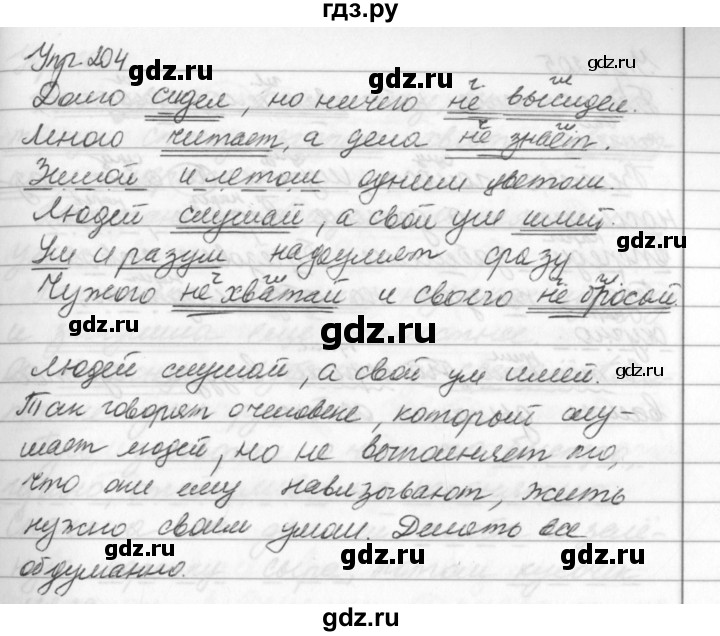 гдз.ру
Упр. 204
Долго сидел, но ничего не высидел.
Много читает, а дела не знает.
Зимой и летом одним цветом.
Людей слушай, а свой ум имей.
Ум и разум надоумят сразу
Чужого не хватай и своего не бросай.
Людей слушай, а свой ум имей.
Так говорят о человеке, который слу-
шает людей, но не выполняет то,
что они ему навязывают, жить
нужно своим умом. Делать все
обдуманно.
gdz.ru
gdz.ru
gdz.ru
gdz.ru
gdz.ru
gdz.ru
gdz.ru
gdz.ru
gdz.ru
gdz.ru
gdz.ru
gdz.ru
gdz.ru
gdz.ru